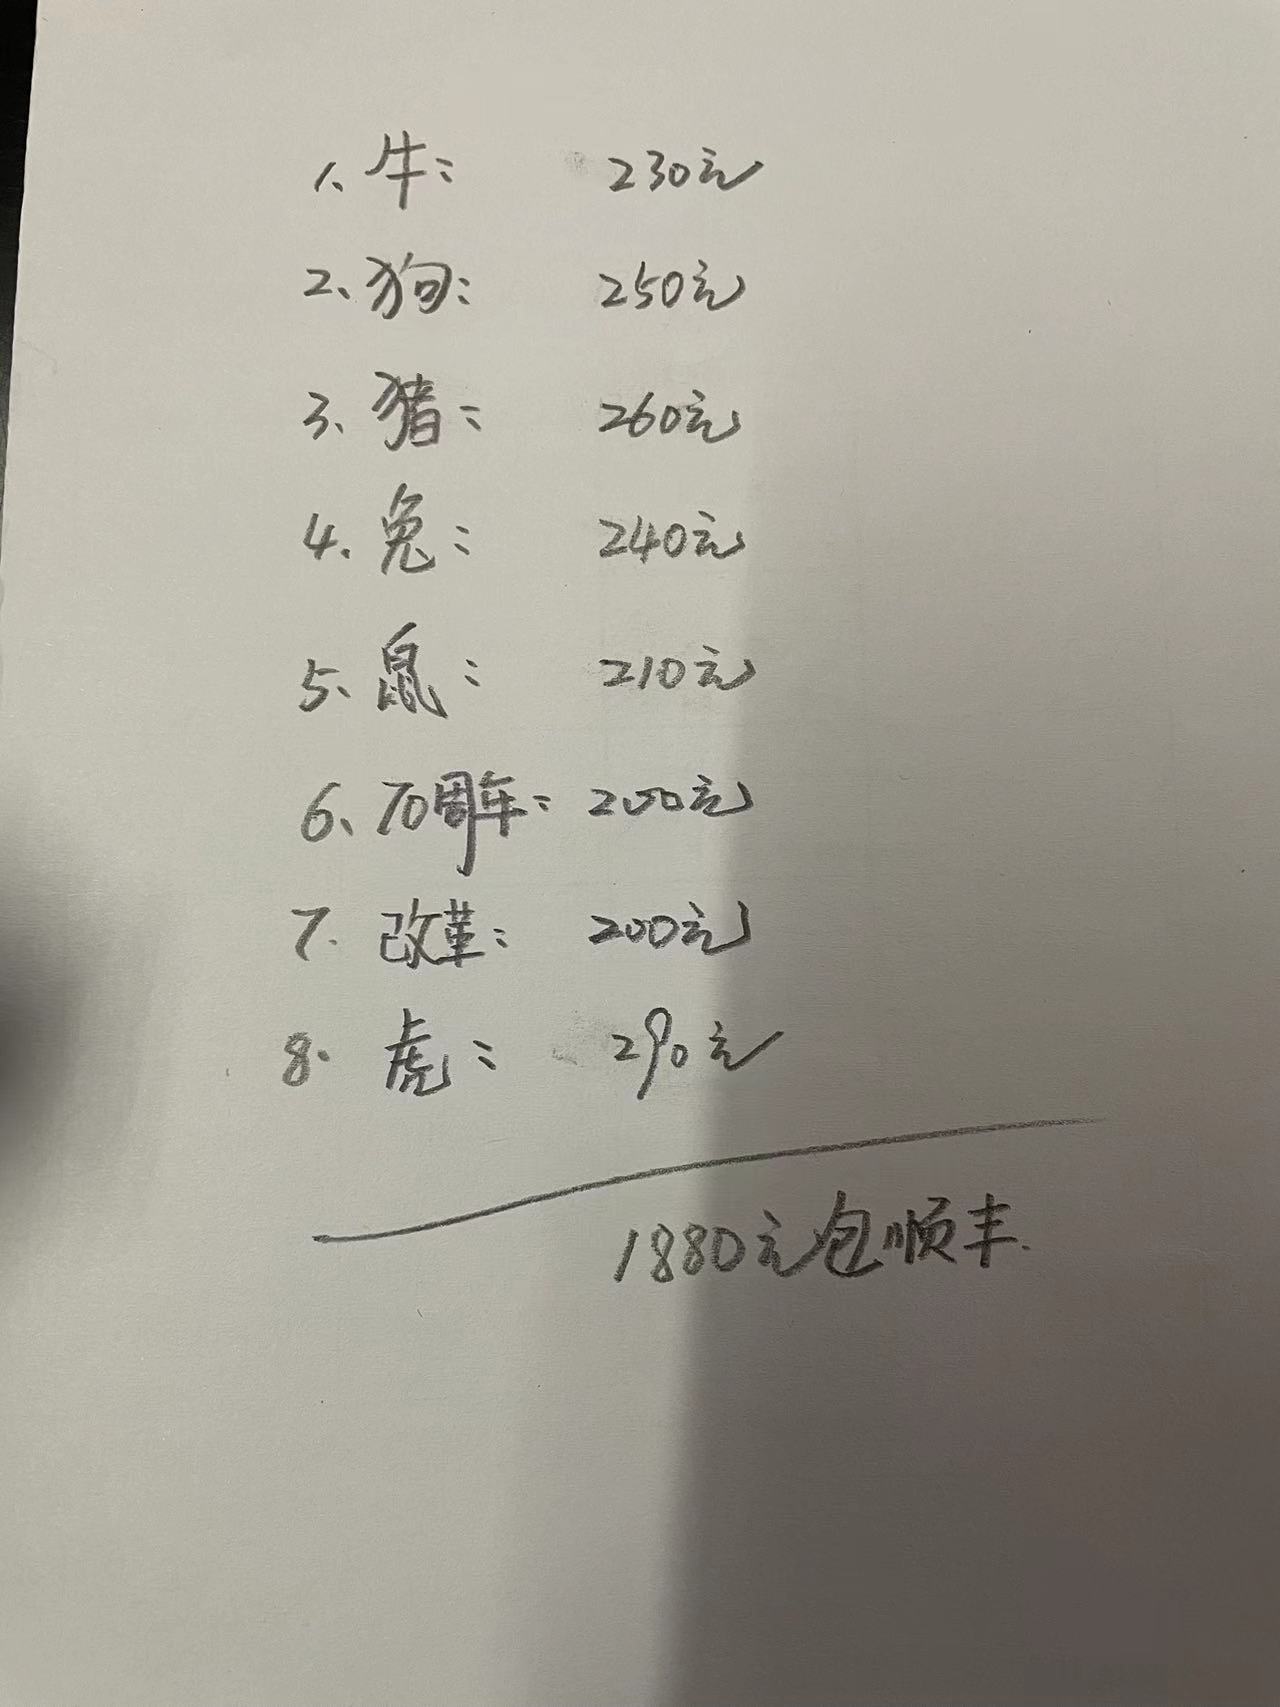 1、牛: 230元
2、狗: 250元
3、猪: 260元
4、兔: 240元
5、鼠: 210元
6、70周年: 200元
7. 改革: 200元
8. 虎: 290元
1880元包顺丰.